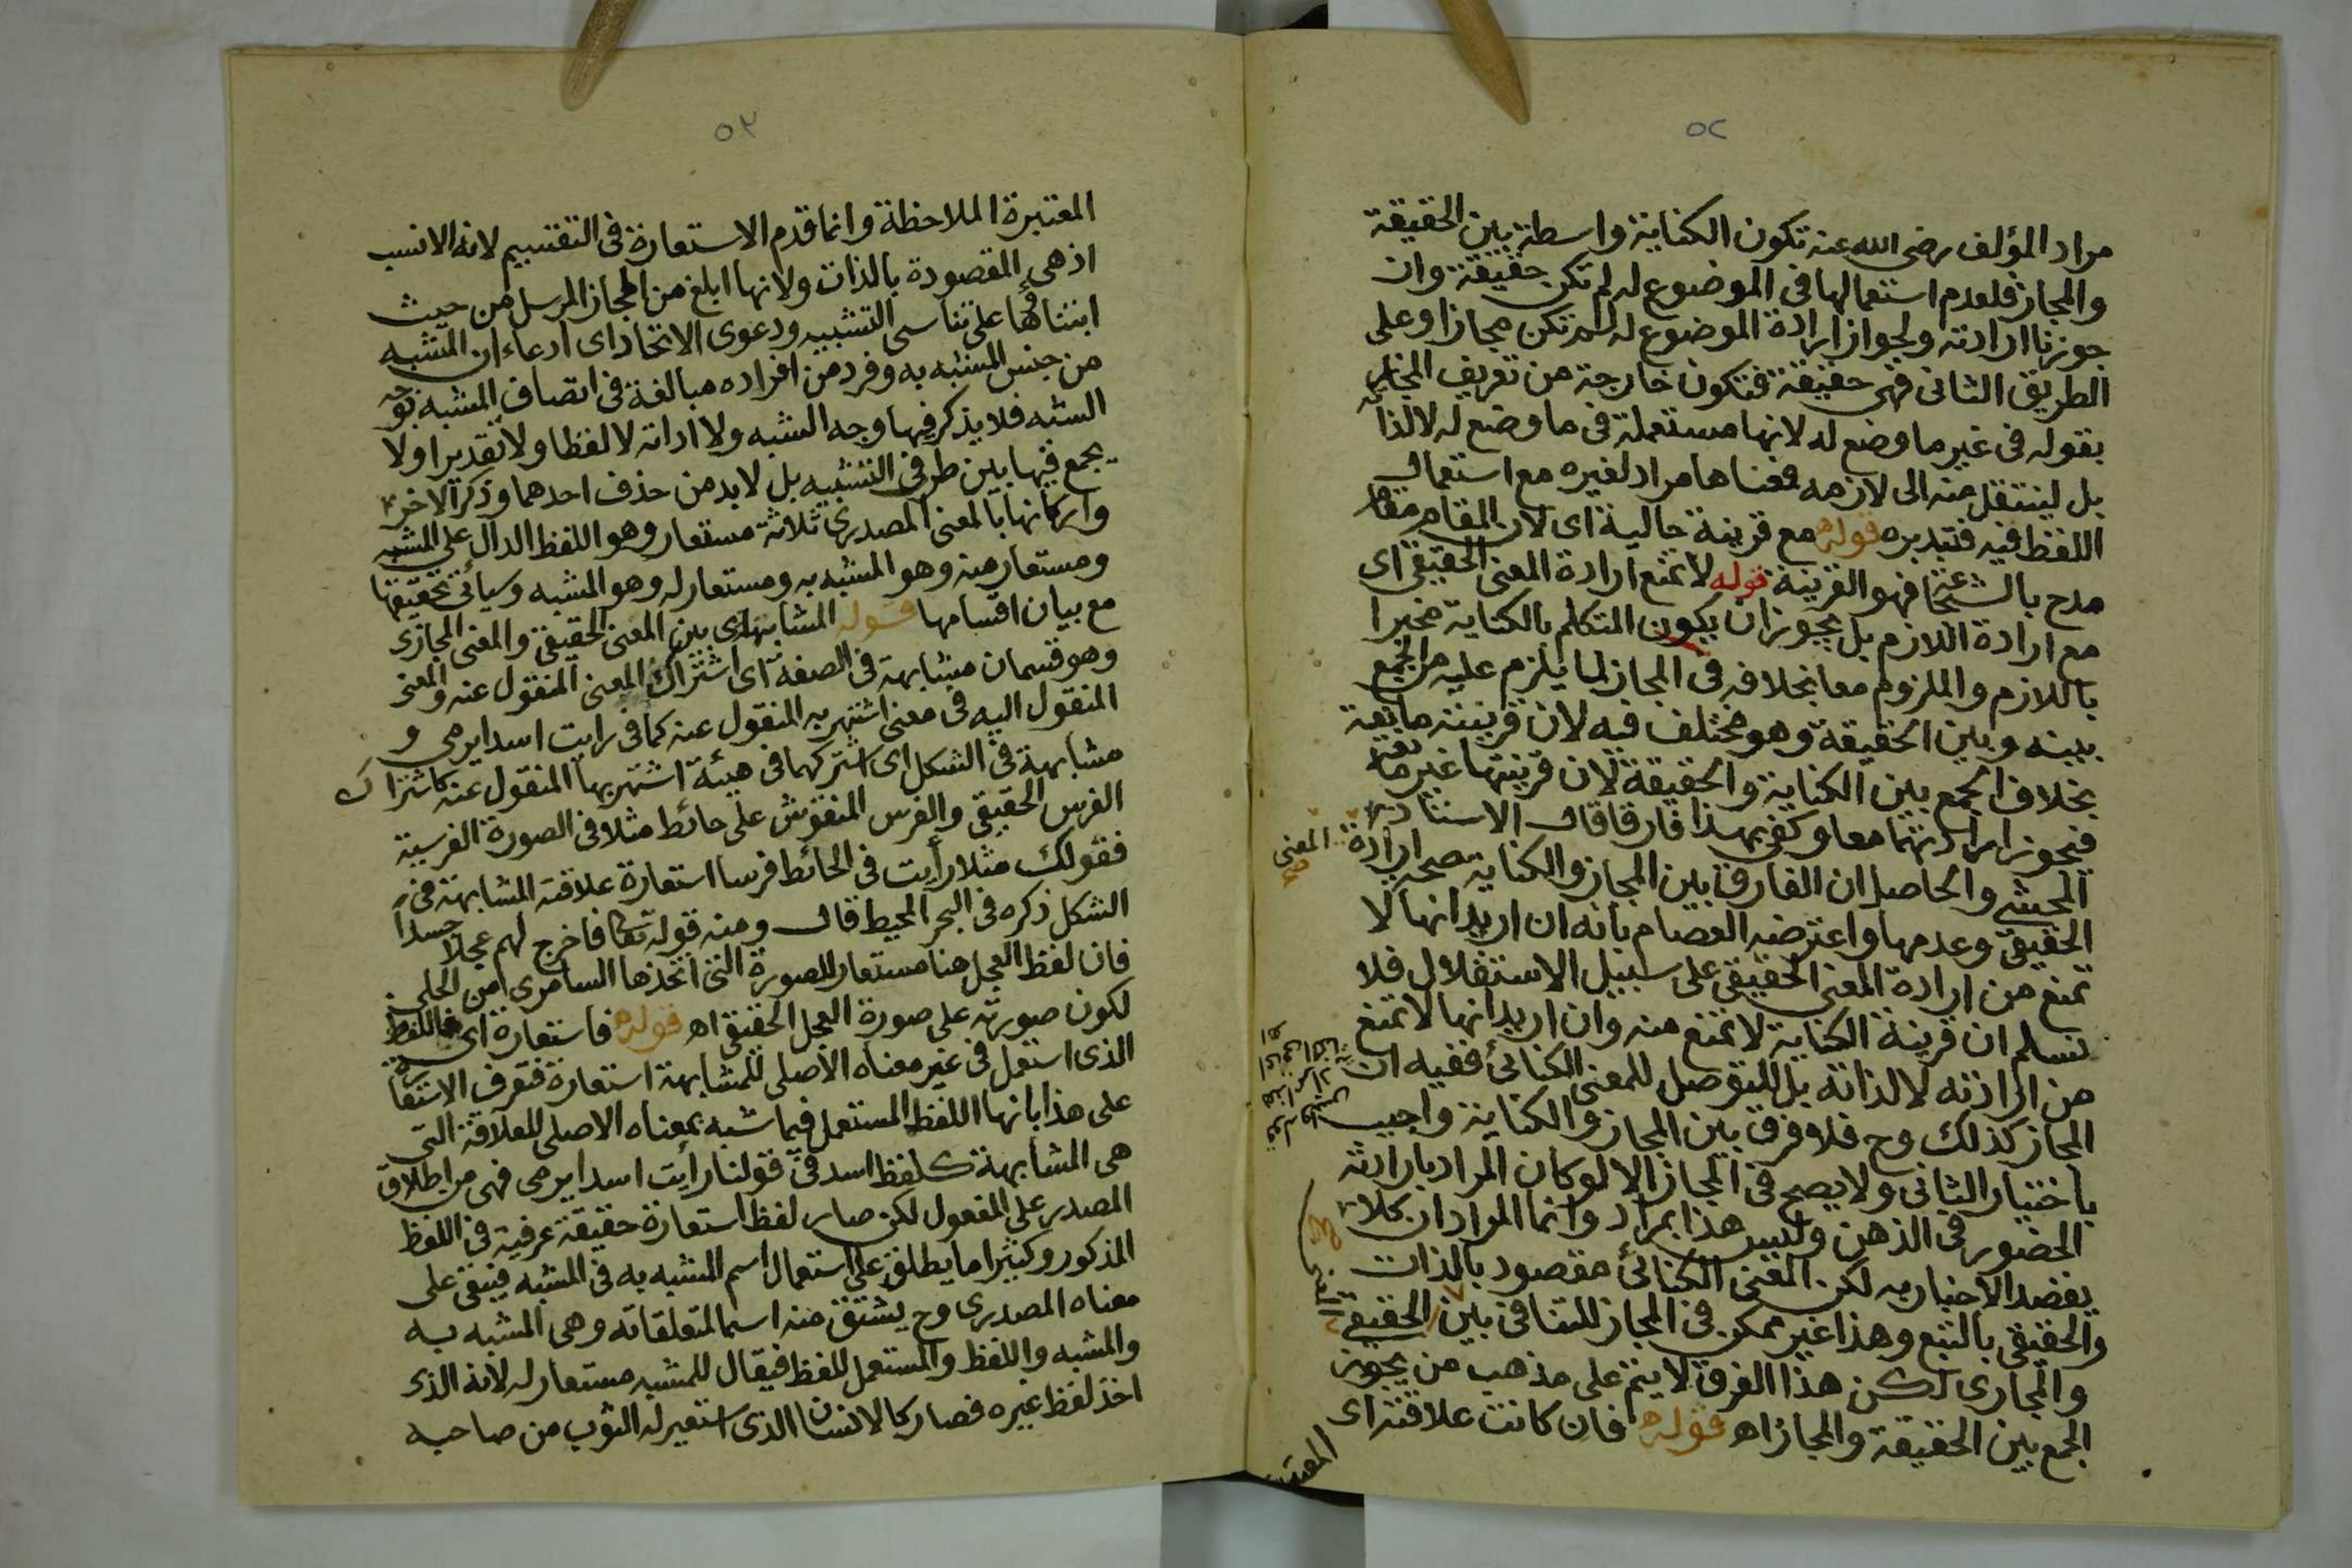 ٥٢
مراد المؤلف رضى الله عنه تكون الكناية واسطة بين الحقيقة
والمجاز فلعدم استعمالها فى الموضوع له لم تكن حقيقة وان
جوزنا ارادته ولجواز ارادة الموضوع له لم تكن مجازا وعلى
الطريق الثانى فهى حقيقة فتكون خارجة من تعريف المجاز
بقوله فى غير ما وضع له لانها مستعملة فى ما وضع له لا لذاته
بل لينتقل منه الى لازمه فمعناها مراد لغيره مع استعمال
اللفظ فيه فتدبره قوله مع قرينة حالية اى لان المقام مقام
مدح بالشجاعة فهو القرينة قوله لا تمنع ارادة المعنى الحقيقى اى
مع ارادة اللازم بل يجوز ان يكون المتكلم بالكناية مخبرا
باللازم والملزوم معا بخلافه فى المجاز لما يلزم عليه من الجمع
بينه وبين الحقيقة وهو مختلف فيه لان قرينته مانعة
بخلاف الجمع بين الكناية والحقيقة لان قرينتها غير مانعة
فيجوز ارادتهما معا وكفى بهذا فارقا قال الاستاذ
المحشى والحاصل ان الفارق بين المجاز والكناية صحة ارادة المعنى
الحقيقى وعدمها واعترضه العصام بانه ان اريد انها لا
تمنع من ارادة المعنى الحقيقى على سبيل الاستقلال فلا
نسلم ان قرينة الكناية لا تمنع منه وان اريد انها لا تمنع
من ارادته لا لذاته بل للتوصل للمعنى الكنائى ففيه ان
المجاز كذلك وح فلا فرق بين المجاز والكناية واجيب
باختيار الثانى ولا يصح فى المجاز الا لو كان المراد بارادته
الحضور فى الذهن وليس هذا بمراد وانما المراد ان كلا
يقصد الاخبار به لكن المعنى الكنائى مقصود بالذات
والحقيقى بالتبع وهذا غير ممكن فى المجاز للتنافى بين الحقيقى
والمجازى لكن هذا الفرق لا يتم على مذهب من يجوز
الجمع بين الحقيقة والمجاز اه قوله فان كانت علاقته اى
المعتبرة
٥٣
المعتبرة الملاحظة وانما قدم الاستعارة فى التقسيم لانه الانسب
اذ هى المقصودة بالذات ولانها ابلغ من المجاز المرسل من حيث
ابتناؤها على تناسى التشبيه ودعوى الاتحاد اى ادعاء ان المشبه
من جنس المشبه به وفرد من افراده مبالغة فى اتصاف المشبه بوجه
الشبه فلا يذكر فيها وجه الشبه ولا اداته لا لفظا ولا تقديرا ولا
يجمع فيها بين طرفى التشبيه بل لا بد من حذف احدهما وذكر الاخر
واركانها بالمعنى المصدرى ثلاثة مستعار وهو اللفظ الدال على المشبه
ومستعار منه وهو المشبه به ومستعار له وهو المشبه وسيأتى تحقيقها
مع بيان اقسامها قوله المشابهة اى بين المعنى الحقيقى والمعنى المجازى
وهو قسمان مشابهة فى الصفة اى اشتراك المعنى المنقول عنه والمعنى
المنقول اليه فى معنى اشتهر به المنقول عنه كما فى رايت اسدا يرمى و
مشابهة فى الشكل اى اشتركهما فى هيئة اشتهر بها المنقول عنه كاشتراك
الفرس الحقيقى والفرس المنقوش على حائط مثلا فى الصورة الفرسية
فقولك مثلا رأيت فى الحائط فرسا استعارة علاقته المشابهة فى
الشكل ذكره فى البحر المحيط قال ومنه قوله تعالى فاخرج لهم عجلا جسدا
فان لفظ العجل هنا مستعار للصورة التى اتخذها السامرى من الحلى
لكون صورته على صورة العجل الحقيقى اه قوله فاستعارة اى فاللفظ
الذى استعمل فى غير معناه الاصلى للمشابهة استعارة فتعرف الاستعارة
على هذا بانها اللفظ المستعمل فيما شبه بمعناه الاصلى للعلاقة التى
هى المشابهة كلفظ اسد فى قولنا رأيت اسدا يرمى فهى من اطلاق
المصدر على المفعول لكن صار لفظ استعارة حقيقة عرفية فى اللفظ
المذكور وكثيرا ما يطلق على استعمال اسم المشبه به فى المشبه فيبقى على
معناه المصدرى وح يشتق منه اسما لمتعلقاته وهى المشبه به
والمشبه واللفظ والمستعمل للفظ فيقال للمشبه مستعار له لانه الذى
اخذ لفظ غيره فصار كالانسان الذى استعير له الثوب من صاحبه